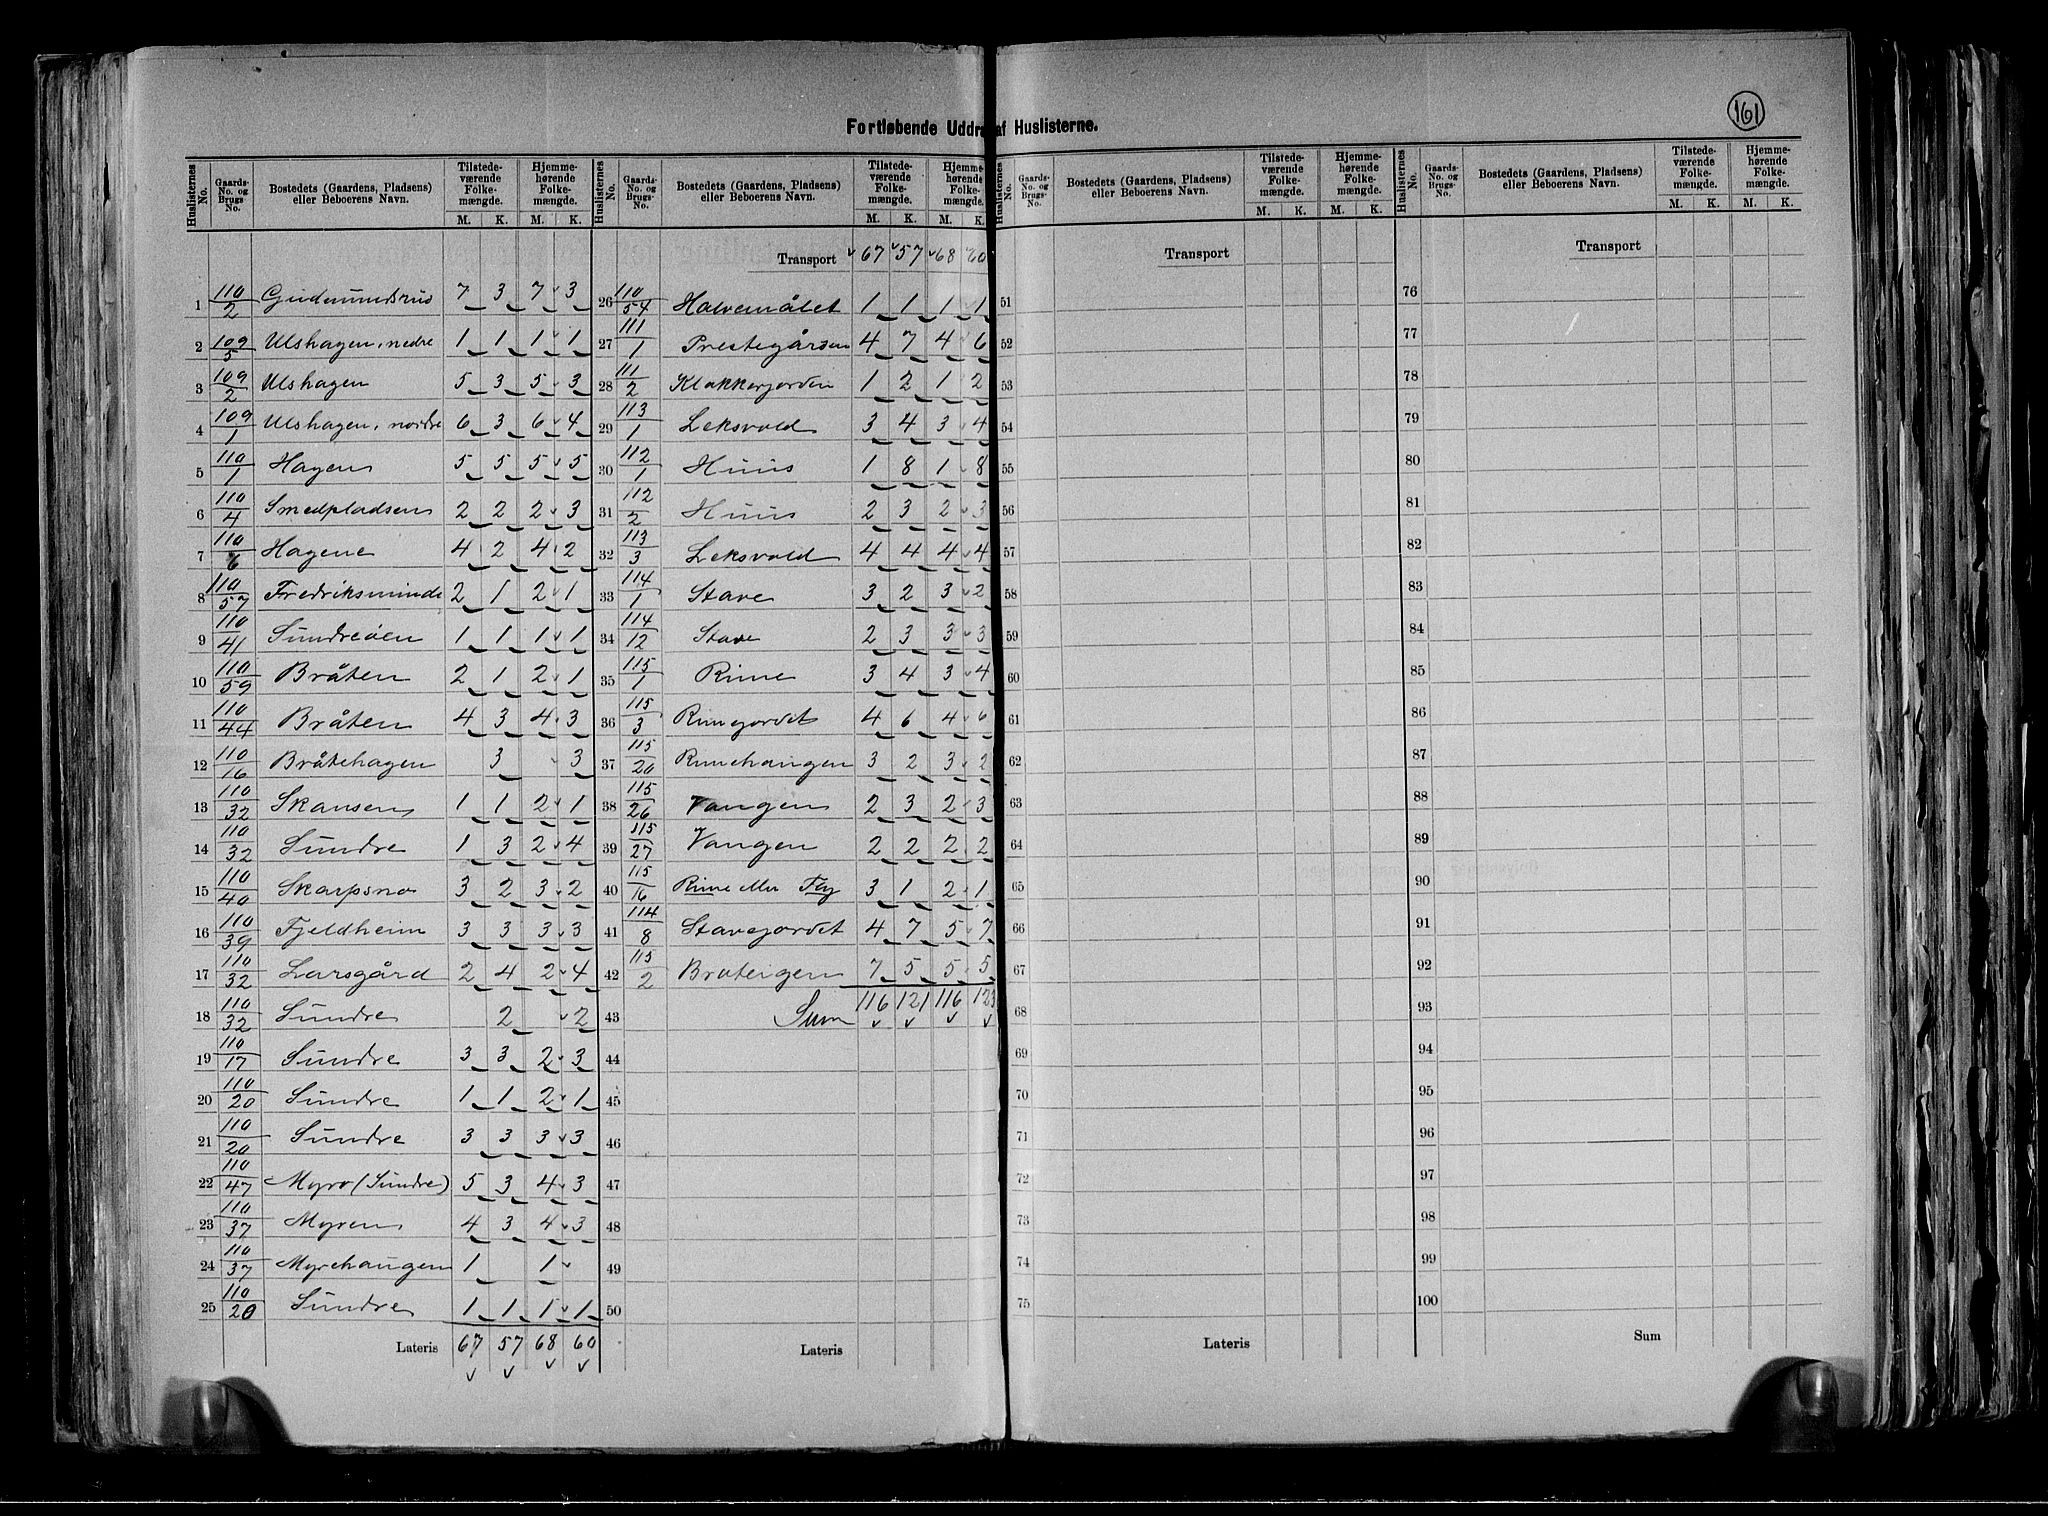 161
Fortløbende Uddra af Huslisterne.
Huslisternes No. | Gaards-No. og Brugs-No. | Bostedets (Gaardens, Pladsens) eller Beboerens Navn. | Tilstedeværende Folkemængde. M. K. | Hjemmehørende Folkemængde. M. K.
1 110/2 Gudmundsrud 7 3 7 3
2 109/5 Ulshagen, nedre 1 1 1 1
3 109/2 Ulshagen 5 3 5 3
4 109/1 Ulshagen, nordre 6 3 6 4
5 110/1 Hagen 5 5 5 5
6 110/4 Smedpladsen 2 2 2 3
7 110/6 Hagene 4 2 4 2
8 110/57 Fredriksminde 2 1 2 1
9 110/41 Sundreøen 1 1 1 1
10 110/59 Bråten 2 1 2 1
11 110/44 Bråten 4 3 4 3
12 110/16 Bråtehagen 3 3
13 110/32 Skansen 1 1 2 1
14 110/32 Sundre 1 3 2 4
15 110/40 Skarpsno 3 2 3 2
16 110/39 Fjeldheim 3 3 3 3
17 110/32 Larsgård 2 4 2 4
18 110/32 Sundre 2 2
19 110/17 Sundre 3 3 2 3
20 110/20 Sundre 1 1 2 1
21 110/20 Sundre 3 3 3 3
22 110/47 Myro (Sundre) 5 3 4 3
23 110/37 Myren 4 3 4 3
24 110/37 Myrehaugen 1 1
25 110/20 Sundre 1 1 1 1
Lateris 67 57 68 60
Huslisternes No. | Gaards-No. og Brugs-No. | Bostedets (Gaardens, Pladsens) eller Beboerens Navn. | Tilstedeværende Folkemængde. M. K. | Hjemmehørende Folkemængde. M. K.
Transport 67 57 68 60
26 110/54 Halvemålet 1 1 1 1
27 111/1 Prestegården 4 7 4 6
28 111/2 Klokkerjorden 1 2 1 2
29 113/1 Leksvold 3 4 3 4
30 112/1 Huus 1 8 1 8
31 112/2 Huus 2 3 2 3
32 113/3 Leksvold 4 4 4 4
33 114/1 Stave 3 2 3 2
34 114/12 Stave 2 3 3 3
35 115/1 Rime 3 4 3 4
36 115/3 Rimejordet 4 6 4 6
37 115/20 Rimehaugen 3 2 3 2
38 115/26 Vangen 2 3 2 3
39 115/27 Vangen 2 2 2 2
40 115/16 Rime eller Fly 3 1 2 1
41 114/8 Stavejordet 4 7 5 7
42 115/2 Broteigen 7 5 5 5
43 Sum 116 121 116 123
44
45
46
47
48
49
50
Lateris
Huslisternes No. | Gaards-No. og Brugs-No. | Bostedets (Gaardens, Pladsens) eller Beboerens Navn. | Tilstedeværende Folkemængde. M. K. | Hjemmehørende Folkemængde. M. K.
Transport
51
52
53
54
55
56
57
58
59
60
61
62
63
64
65
66
67
68
69
70
71
72
73
74
75
Lateris
Huslisternes No. | Gaards-No. og Brugs-No. | Bostedets (Gaardens, Pladsens) eller Beboerens Navn. | Tilstedeværende Folkemængde. M. K. | Hjemmehørende Folkemængde. M. K.
Transport
76
77
78
79
80
81
82
83
84
85
86
87
88
89
90
91
92
93
94
95
96
97
98
99
100
Sum